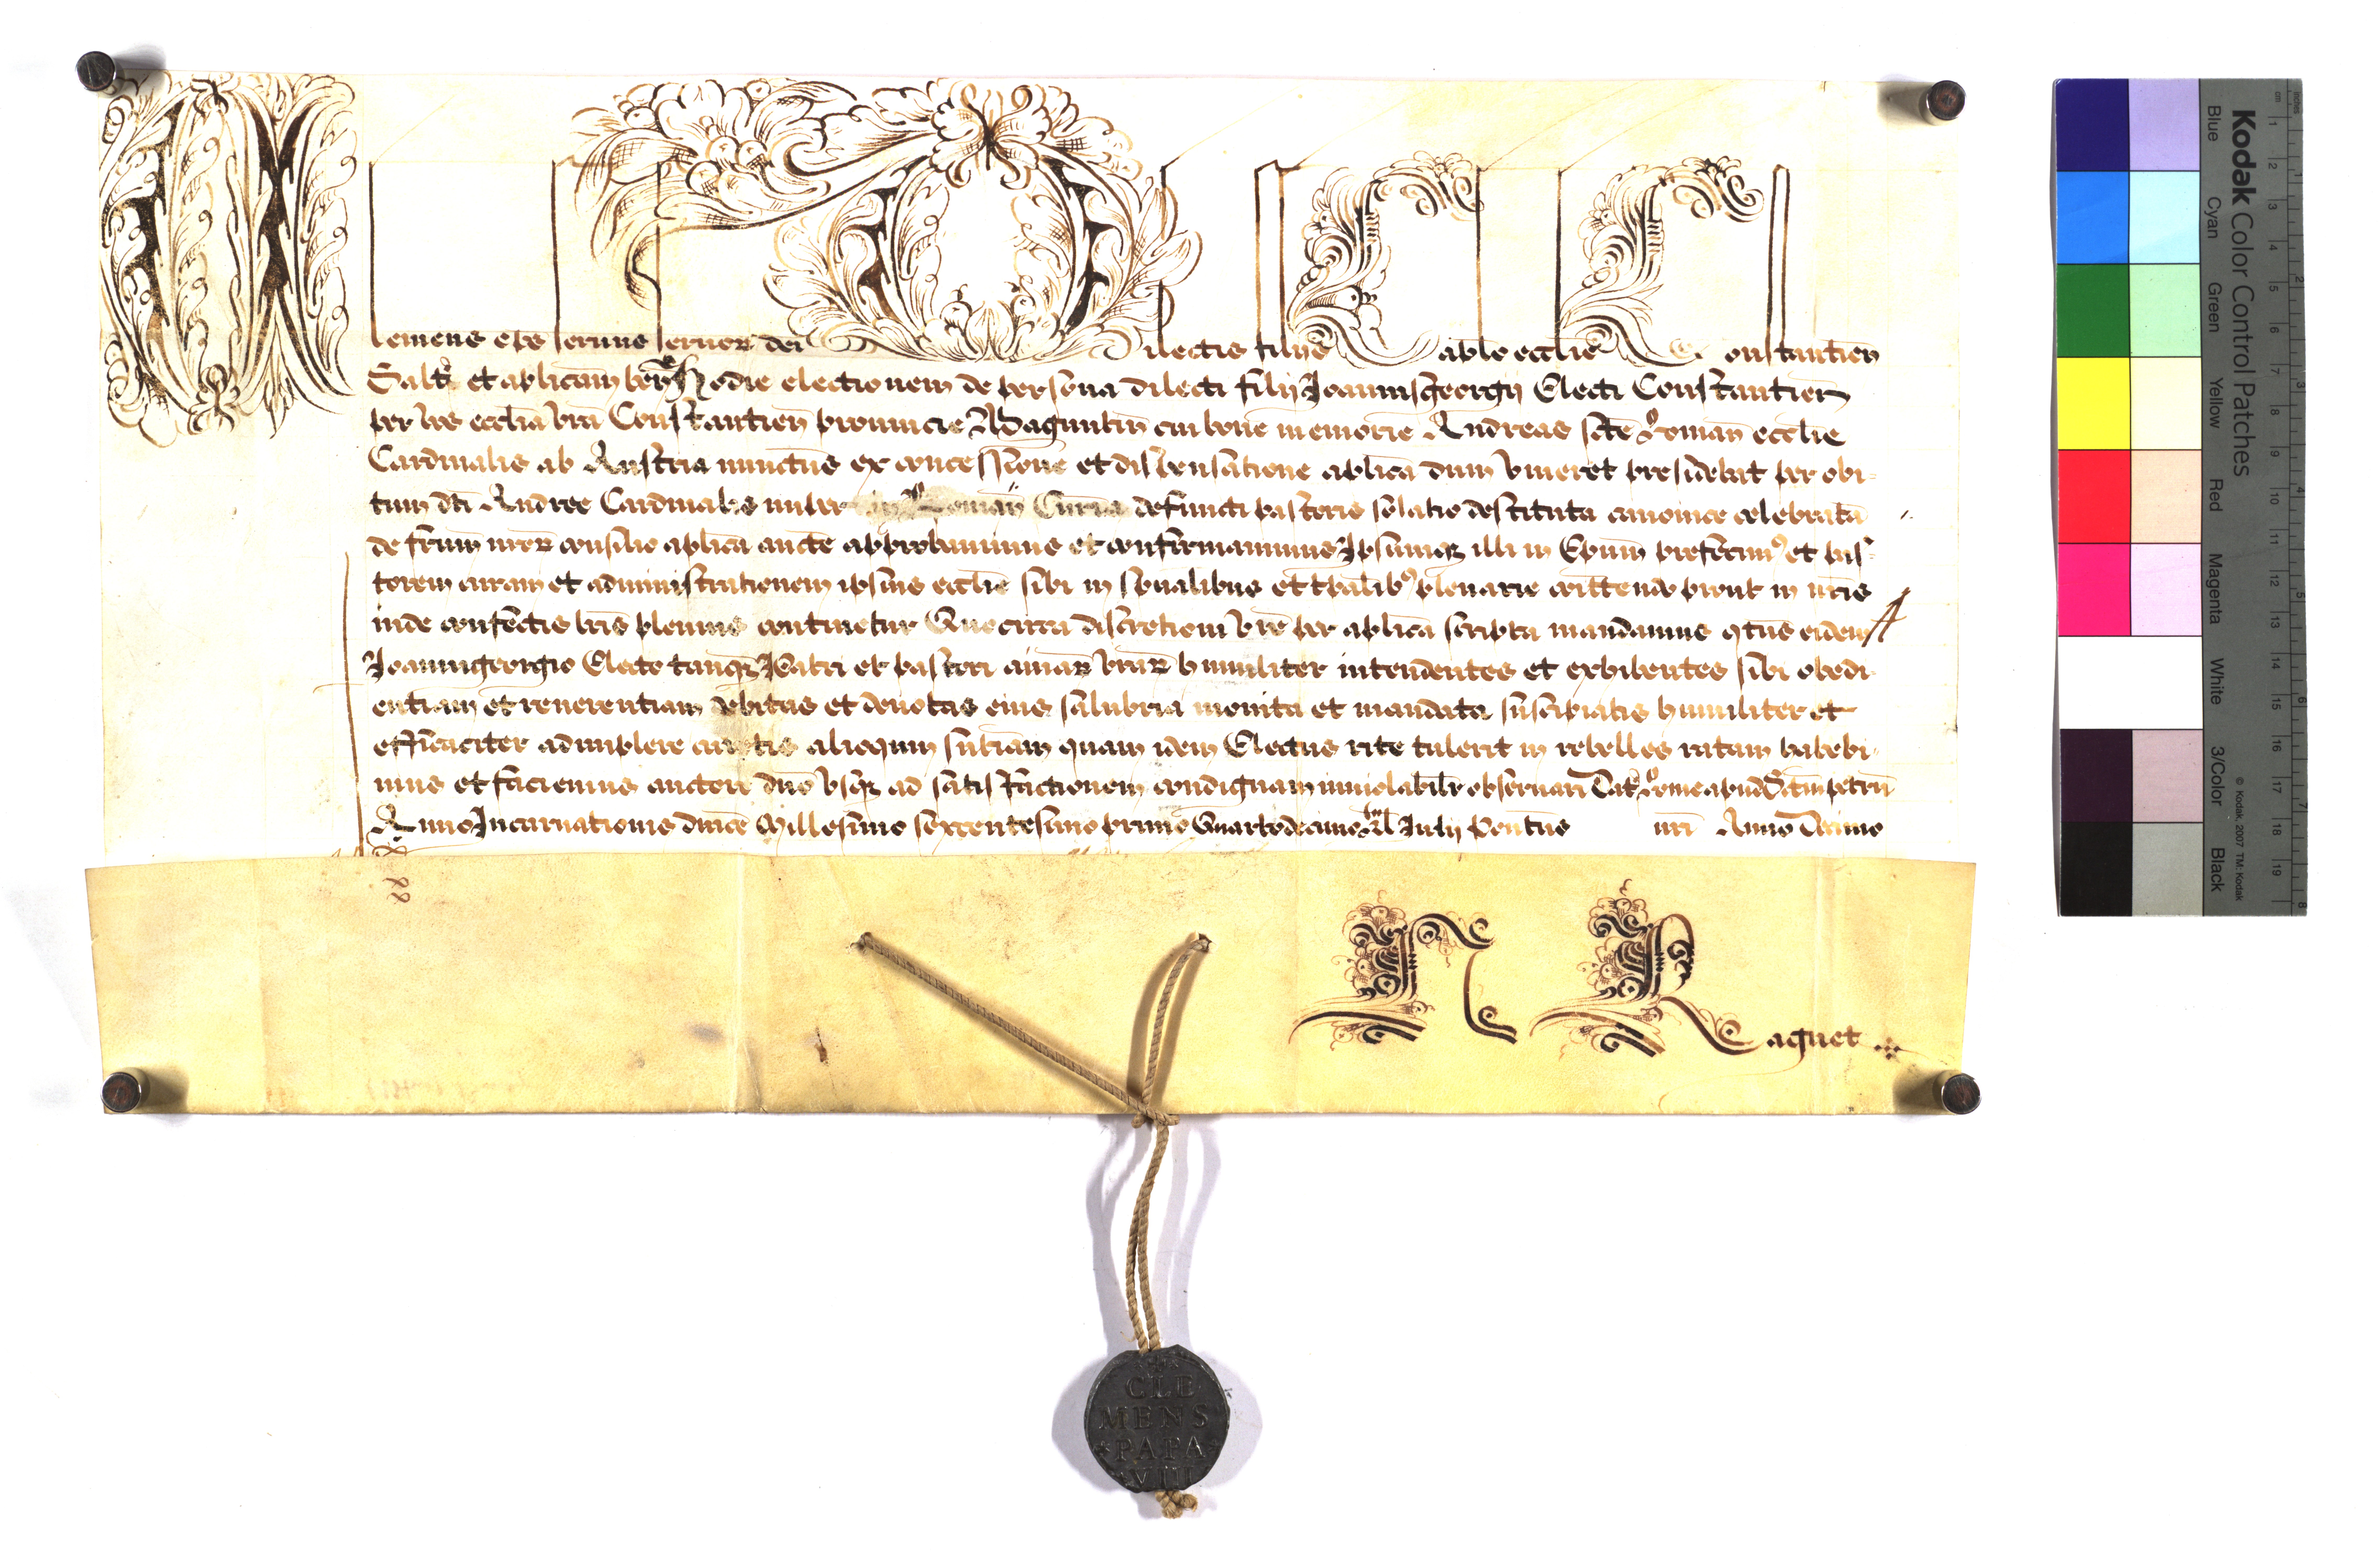 Clemens eps seruus seruor dei Dilectis filijs Caplo ecclie Constantien
Saltem et aplicam ben Hodie electionem de persona dilecti filij Joannisgeorgij Electi Constantien
per vos ecclia vra Constantien prouincie Maguntin cui bone memorie Andreas scte Roman ecclie
Cardinalis ab Austria nunctus ex concessione et dispensatione aplica dum viueret presidebat per obi-
tum dti Andree Cardinalis nuper in Roman Curia defuncti pastoris solatio destituta canonice celebrata
de frum nror consilio aplica aucte approbauimus et confirmauimus Ipsumq illi in Epum prefecim9 et pas-
torem curam et administrationem ipsius ecclie sibi in spualibus et tpalib9 plenarie comittendo prout in nris
inde confectis lris plenius continetur Quocirca discretioni vre per aplica scripta mandamus qtus eidem
Joannigeorgio Electo tanq Patri et pastori aimar vrar humiliter intendentes et exhibentes sibi obedi-
entiam et reuerentiam debitas et deuotas eius salubria monita et mandata suscipiatis humiliter et
efficaciter adimplere curetis alioquin sntiam quam idem Electus rite tulerit in rebelles ratam habebi-
mus et faciemus auctore dno vsq ad satisfactionem condignam inuiolabilr obseruari Dat Rome apud Sctm petru
Anno Incarnationis dnice Millesimo sexcentesimo primo Quartodecimo kal Julij Pontus nri Anno Decimo
N Raguet
CLE
MENS
PAPA
VIII
Kodak Color Control Patches
Blue Cyan Green Yellow Red Magenta White 3/Color Black
© Kodak, 2007 TM: Kodak
inches 1 2 3 4 5 6 7 8
cm 1 2 3 4 5 6 7 8 9 10 11 12 13 14 15 16 17 18 19